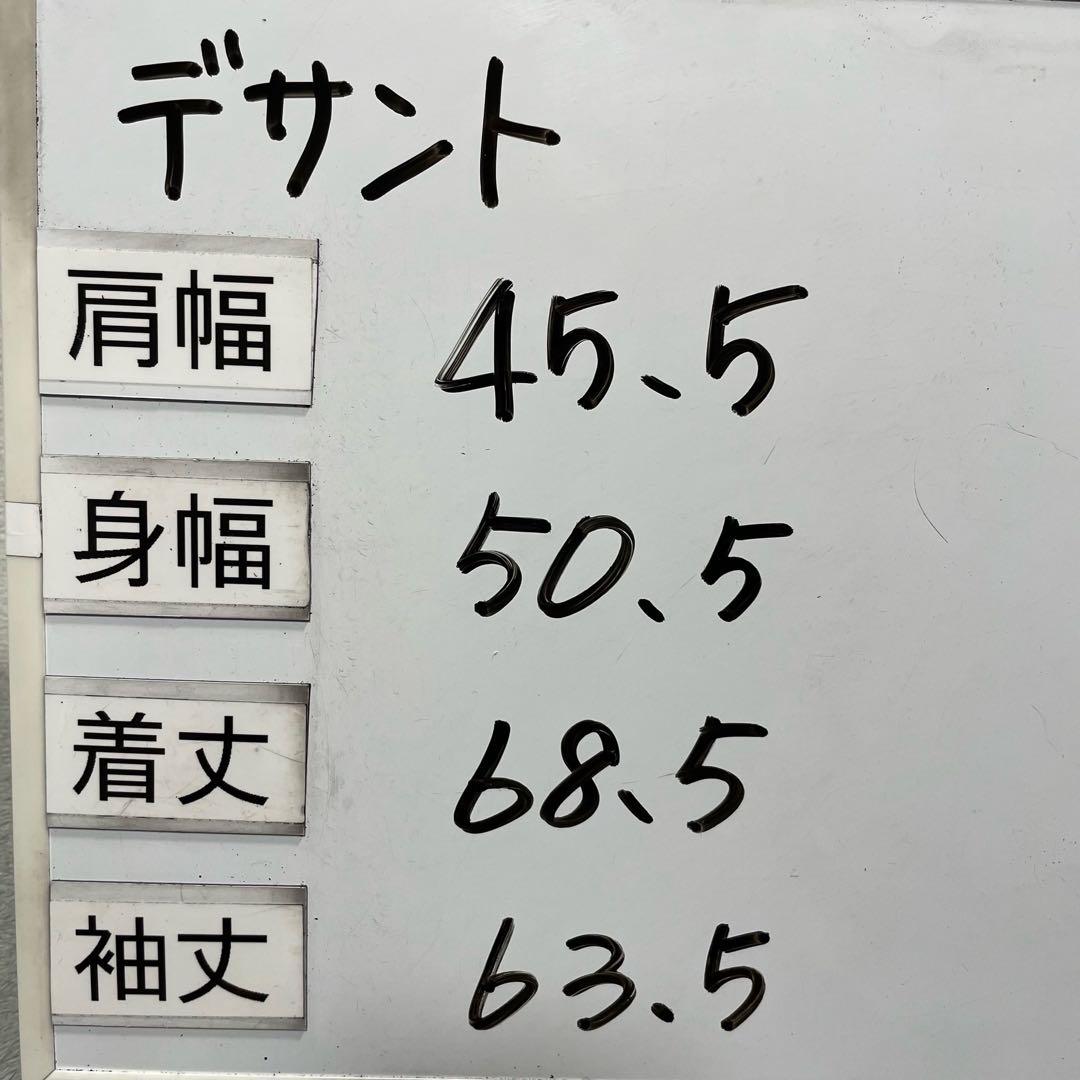 デサント
肩幅 45.5
身幅 50.5
着丈 68.5
袖丈 63.5